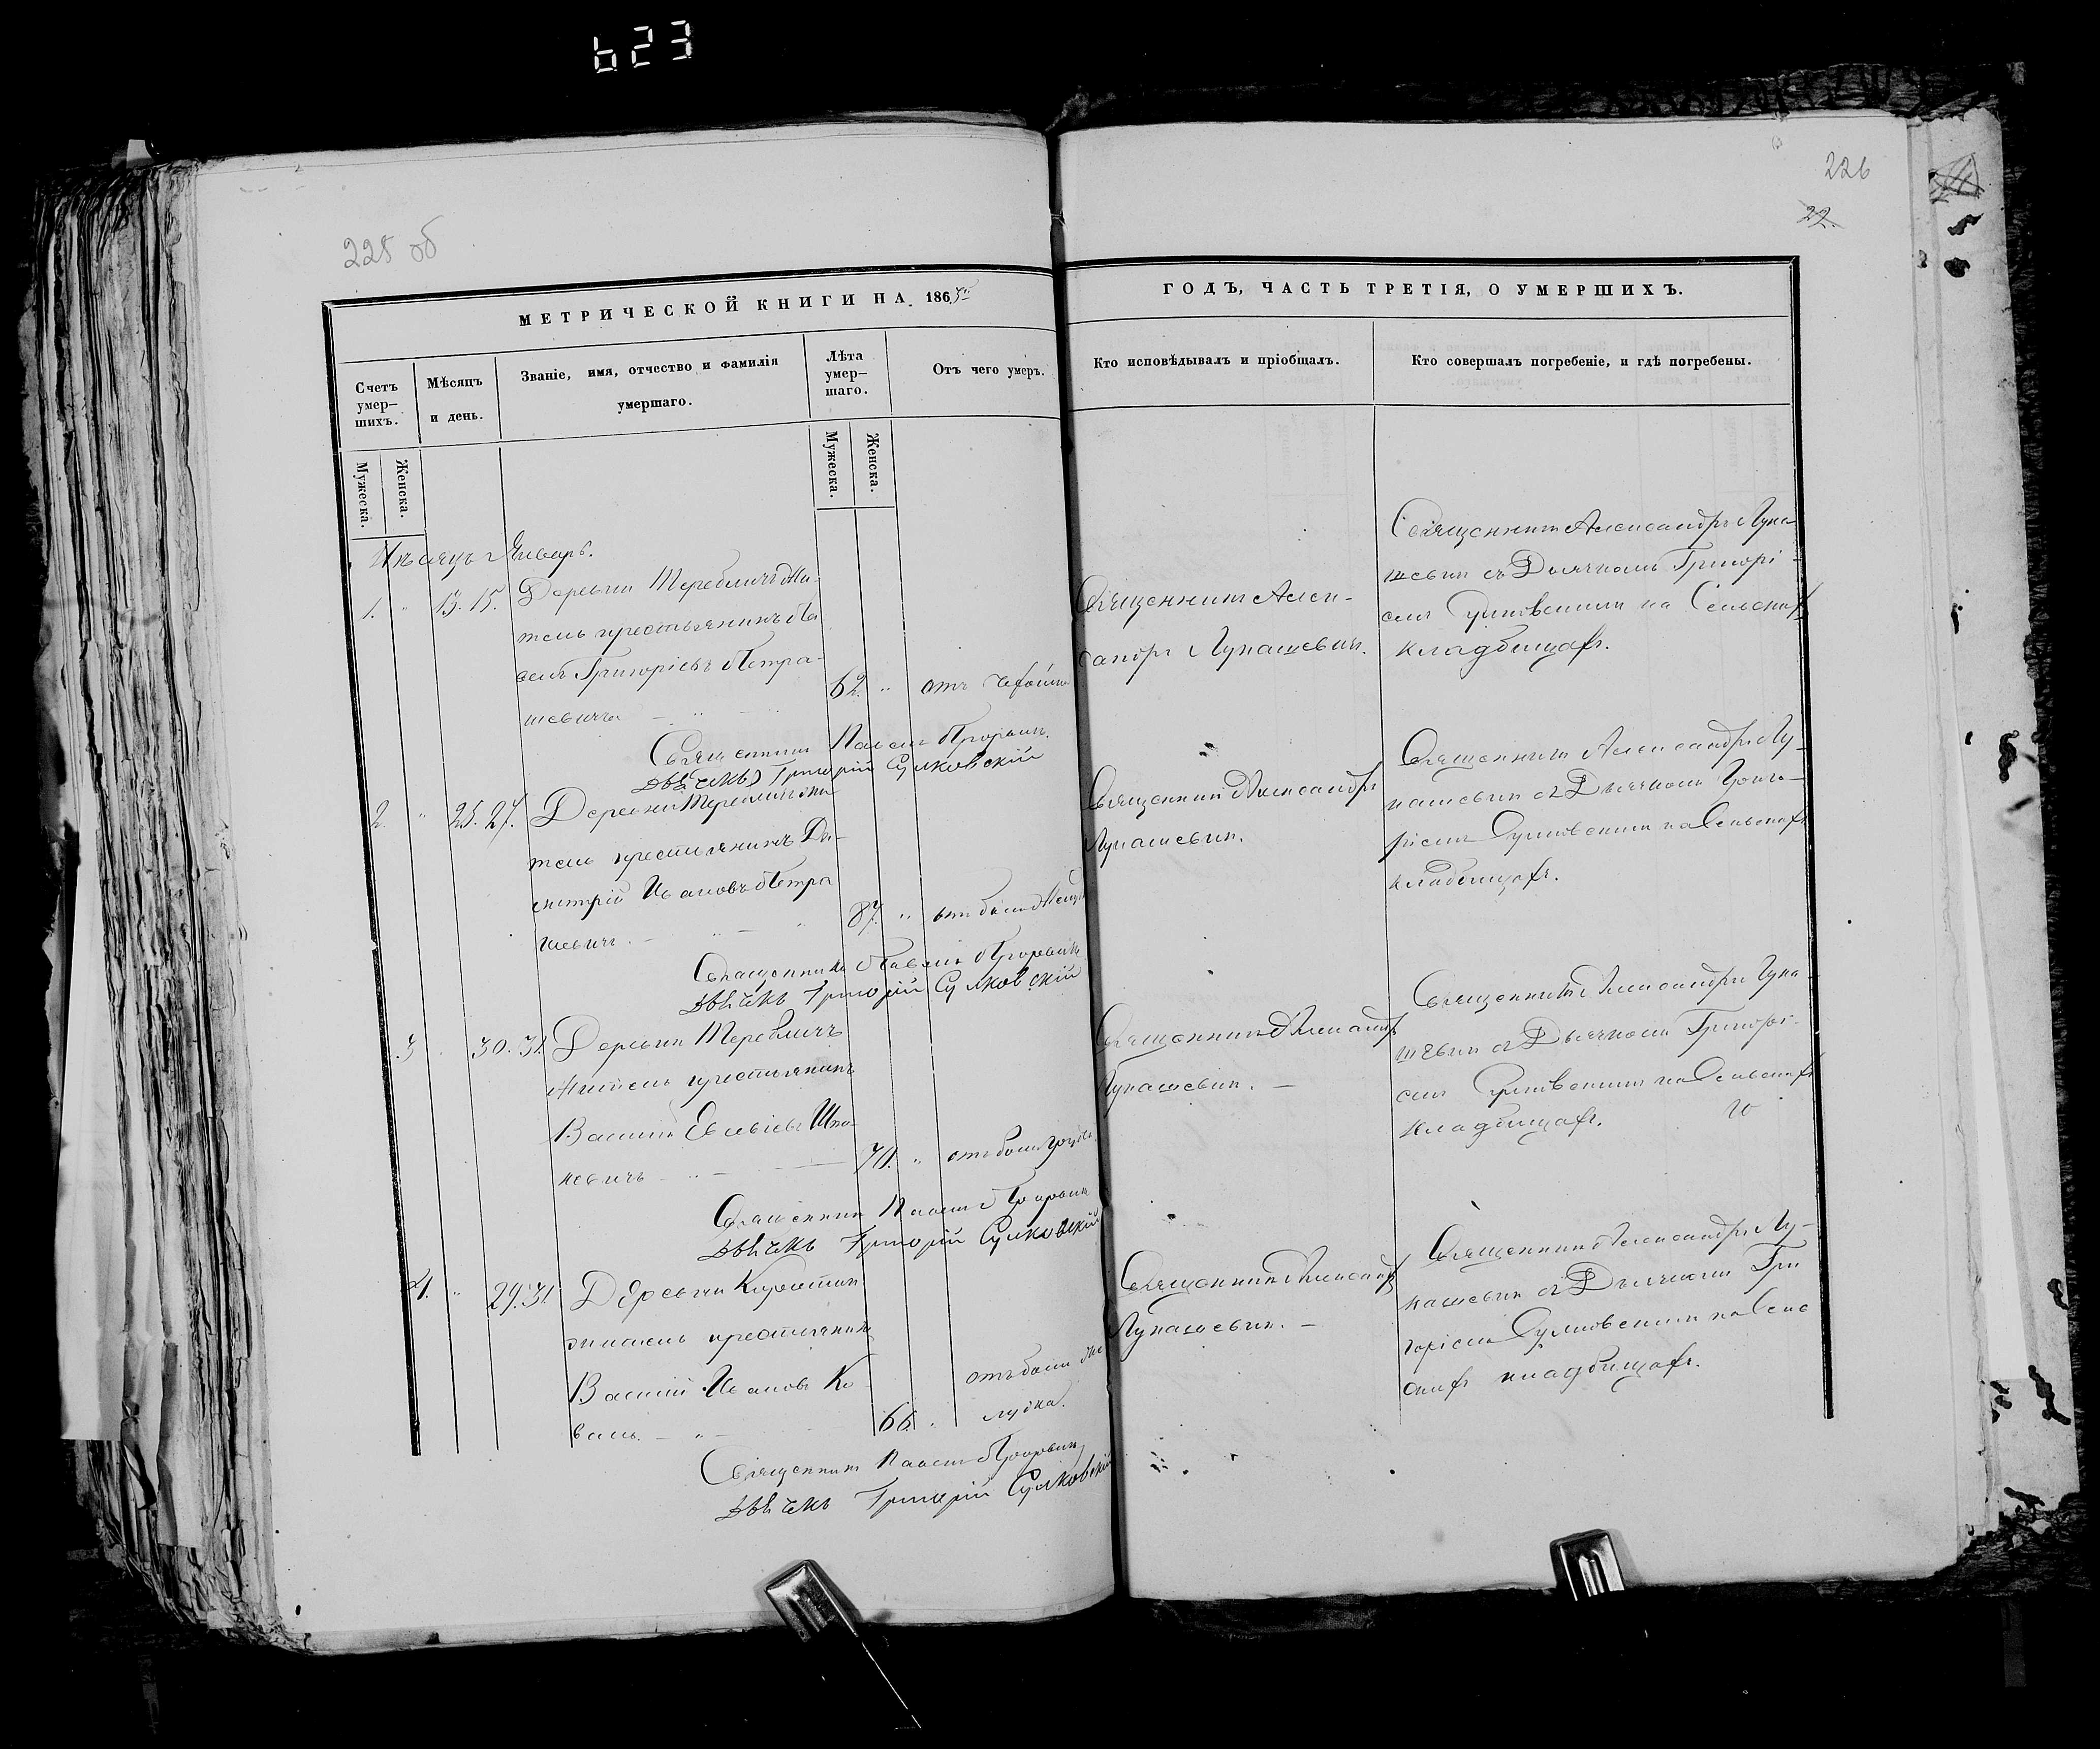 623
225 об
226
22.
МЕТРИЧЕСКОЙ КНИГИ НА 1865
ГОДЪ, ЧАСТЬ ТРЕТІЯ, О УМЕРШИХЪ.
Счетъ умер–
шихъ.
Мѣсяцъ
и день.
Званіе, имя, отчество и фамилія
умершаго.
Лѣта
умер–
шаго.
Отъ чего умеръ.
Кто исповѣдывалъ и пріобщалъ.
Кто совершалъ погребеніе, и гдѣ погребены.
Мужеска.
Женска.
Мужеска.
Женска.
Мѣсяцъ Январь.
1. " 13. 15. Деревни Теребличъ жи-
тель крестьянинъ
Григоріевъ Петра-
шевичъ 62. " отъ
Священникъ Алек-
сандръ Лукашевичъ.
Священникъ Александръ Лука-
шевичъ съ Дьячкомъ Григорі-
емъ Сулковскимъ на Сельскихъ
кладбищахъ.
Священникъ Павелъ
Дьячекъ Григорій Сулковскій
2. " 25. 27. Деревни Теребличъ жи-
тель крестьянинъ Ди-
митрій Ивановъ Петра
шевичъ. 87. " отъ боли
Священникъ Александръ
Лукашевичъ.
Священникъ Александръ Лу-
кашевичъ съ Дьячкомъ Григо-
ріемъ Сулковскимъ на Сельскихъ
кладбищахъ.
Священникъ Павелъ
Дьячекъ Григорій Сулковскій
3 " 30. 31. Деревни Теребличъ
житель крестьянинъ
Василій
невичъ 70. " отъ боли груди.
Священникъ Александръ
Лукашевичъ. —
Священникъ Александръ Лука-
шевичъ съ Дьячкомъ Григорі-
емъ Сулковскимъ на Сельскихъ
кладбищахъ.
Священникъ Павелъ
Дьячекъ Григорій Сулковскій
4. " 29. 31. Деревни
житель крестьянинъ
Василій Ивановъ Ко
валь. 66. " отъ боли же
лудка.
Священникъ Александръ
Лукашевичъ. —
Священникъ Александръ Лу-
кашевичъ съ Дьячкомъ Гри
горіемъ Сулковскимъ на Сель
скихъ кладбищахъ.
Священникъ Павелъ
Дьячекъ Григорій Сулковскій